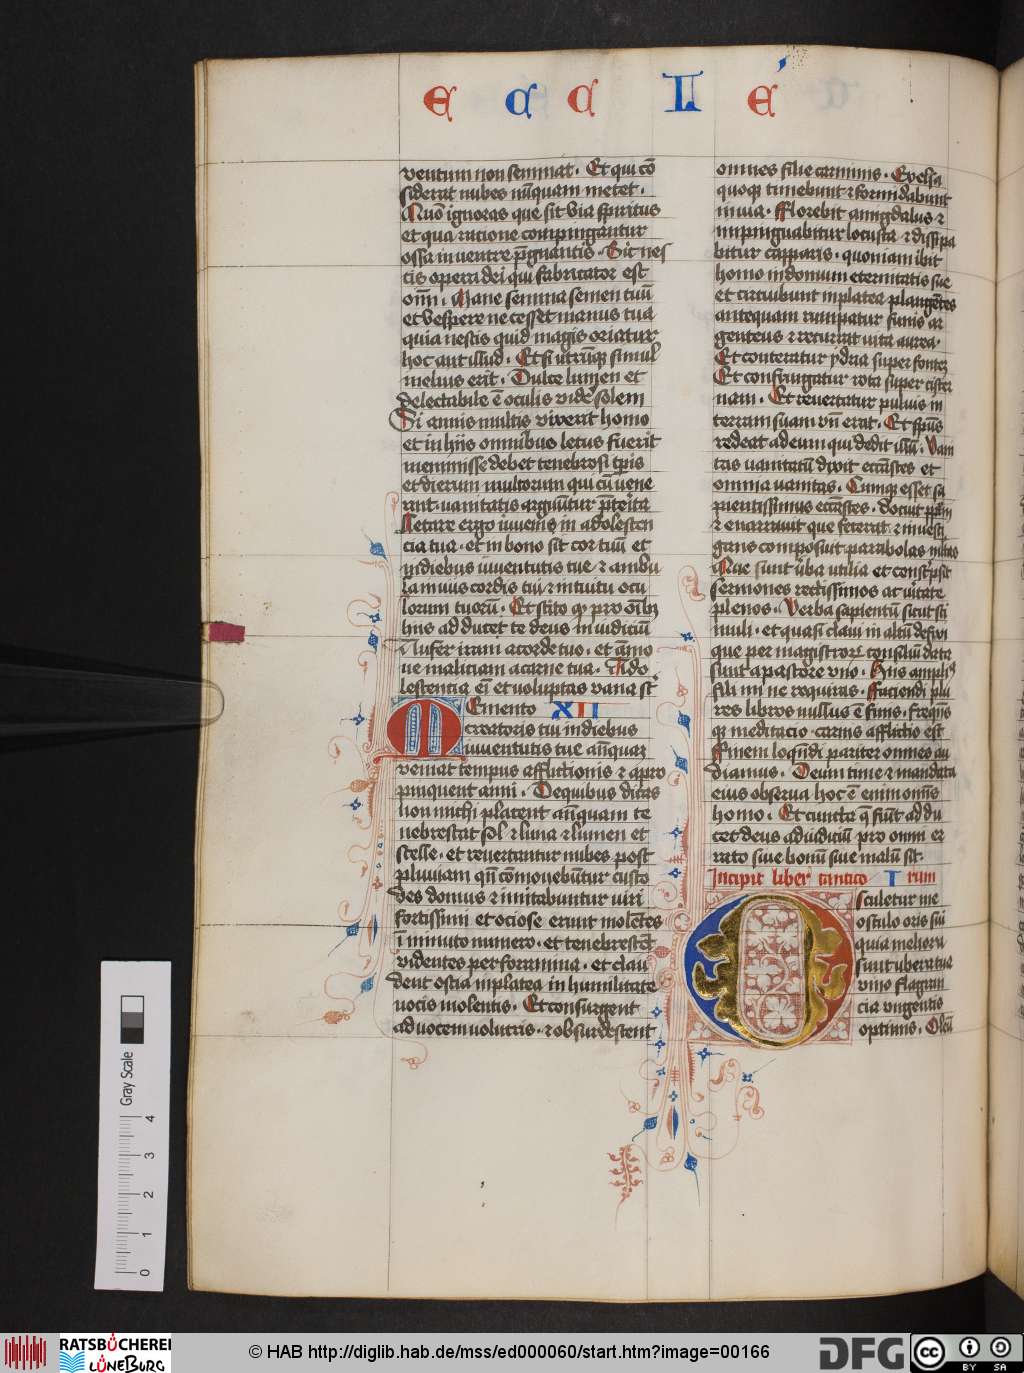 E C C L É
ventum non seminat. Et qui cõ
siderat nubes nũquam metet.
Quõ ignoras que sit via spiritus
et qua ratione compingantur
ossa in ventre p̃gnantis. Sic nes
cis opera dei qui fabricator est
om̃. Mane semina semen tuũ
et vespere ne cesset manus tua
quia nescis quid magis oriatur
hoc aut illud. Et si utrũq; simul
melius erit. Dulce lumen et
delectabile ẽ oculis videre solem
Si annis multis vixerit homo
et in hiis omnibus letus fuerit
meminisse debet tenebrosi tp̃is
et dierum multorum qui cũ vene
rint. vanitatis arguũtur p̃terita
Letare ergo iuvenis in adolescen
cia tua. et in bono sit cor tuũ et
in diebus iuventutis tue ⁊ ambu
la in viis cordis tui ⁊ in tuitu ocu
lorum tuorũ. Et scito q̃ pro oĩbꝫ
hiis adducet te deus in iudiciũ
Aufer iram a corde tuo. et amo
ve maliciam a carne tua. Ado
lescentia eĩ et voluptas vana sũt
Memento XII
creatoris tui in diebus
iuventutis tue añquaꝫ
veniat tempus afflictionis ⁊ apro
pinquent anni. De quibus dicas
non michi placent añquam te
nebrescat sol ⁊ luna ⁊ lumen et
stelle. et revertantur nubes post
pluviam qñ comovebũtur custo
des domus ⁊ nutabuntur viri
fortissimi et ociose erunt molẽtes
ĩ minuto numero. et tenebrescẽt
videntes per foramina. et clau
dent ostia in platea in humilitate
vocis molentis. Et consurgent
ad vocem volucris. ⁊ obsurdescent
omnes filie carminis. Excelsa
quoq; timebunt ⁊ formidabunt
in via. Florebit amigdalus ⁊
inpinguabitur locusta ⁊ dissipa
bitur capparis. quoniam ibit
homo in domum eternitatis sue
et circuibunt in platea plangẽtes
antequam rumpatur funis ar
genteus ⁊ recurrat vita aurea.
Et conteratur ydria super fonteꝫ
Et confringatur rota super cister
nam. Et revertatur pulvis in
terram suam vñ erat. Et sp̃us
redeat ad eum qui dedit illũ. Vani
tas vanitatũ dixit eccl̃stes et
omnia vanitas. Cumq; esset sa
pientissimus eccl̃stes. docuit pp̃lm
⁊ enarravit que fecerat ⁊ investi
gans composuit parabolas m̃ltas
Que sunt v̾ba utilia et conscripsit
sermones rectissimos ac v̾itate
plenos. Verba sapientũ sicut sti
muli. et quasi clavi in altũ defixi
que per magistrorꝫ consiliũ data
sunt a pastore uno. Hiis ampliꝰ
fili mi ne requiras. Faciendi plu
res libros nullus ẽ finis. freq̃ns
q; meditacio. carnis afflictio est
Finem loq̃ndi pariter omnes au
diamus. Deum time ⁊ mandata
eius observa hoc ẽ enim omnis
homo. Et cuncta q̃ fiũt addu
cet deus ad iudiciũ pro omni er
rato sive bonũ sive malũ sit.
Incipit liber cantico I rum
Osculetur me
osculo oris sui
quia meliora
sunt ubera tua
vino flagran
cia ungentis
optimis. Oleũ
Gray Scale
0 1 2 3 4
RATSBÜCHEREI
LÜNEBURG
© HAB http://diglib.hab.de/mss/ed000060/start.htm?image=00166
DFG
cc BY SA